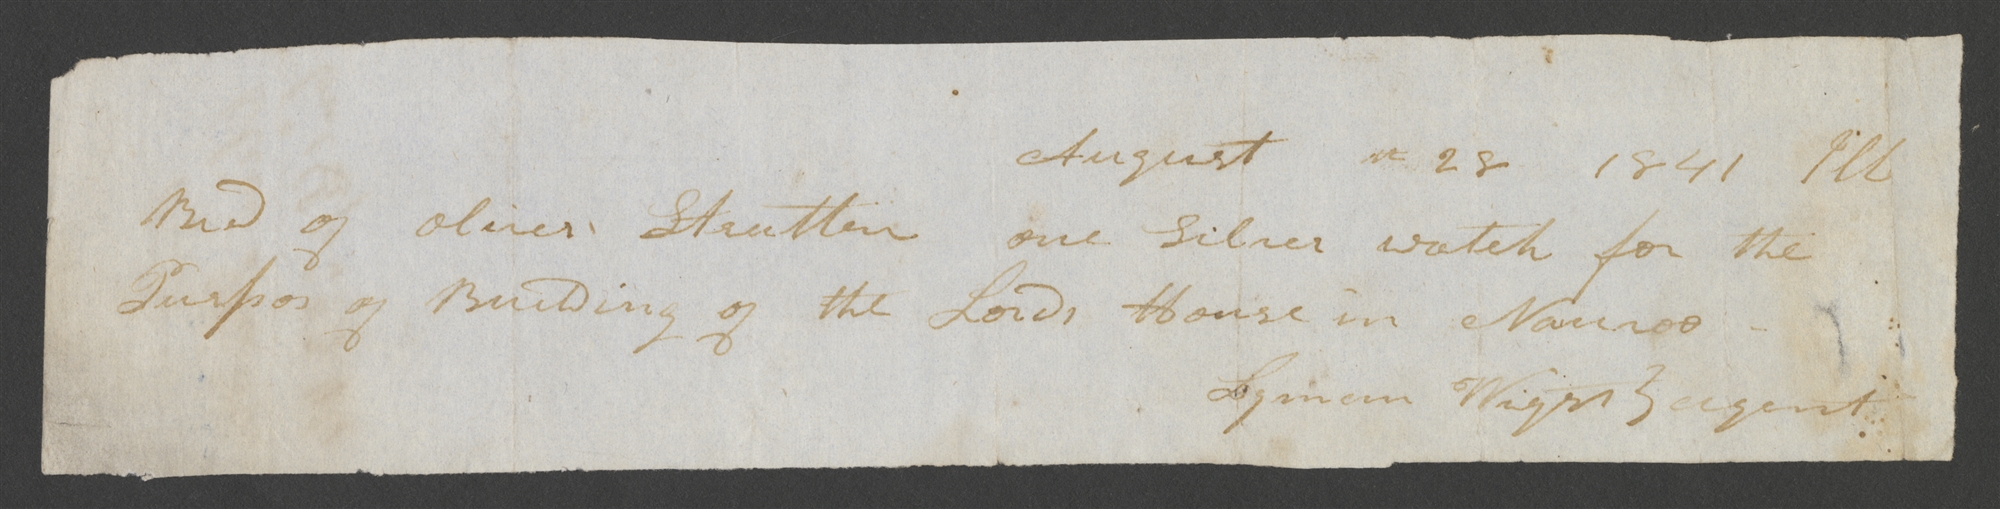 August th 28 1841 Ill
Recd of oliver Stratten one Silver watch for the
Purpos of Building of the Lords House in Nauvoo -
Lyman Wight } agent